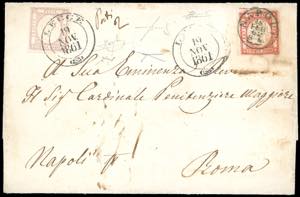 LECCE
19
NOV
1861
LECCE
19
NOV
1861
A Sua Eminenza
Il Sig Cardinale Penitenziere Maggiore
Napoli
Roma